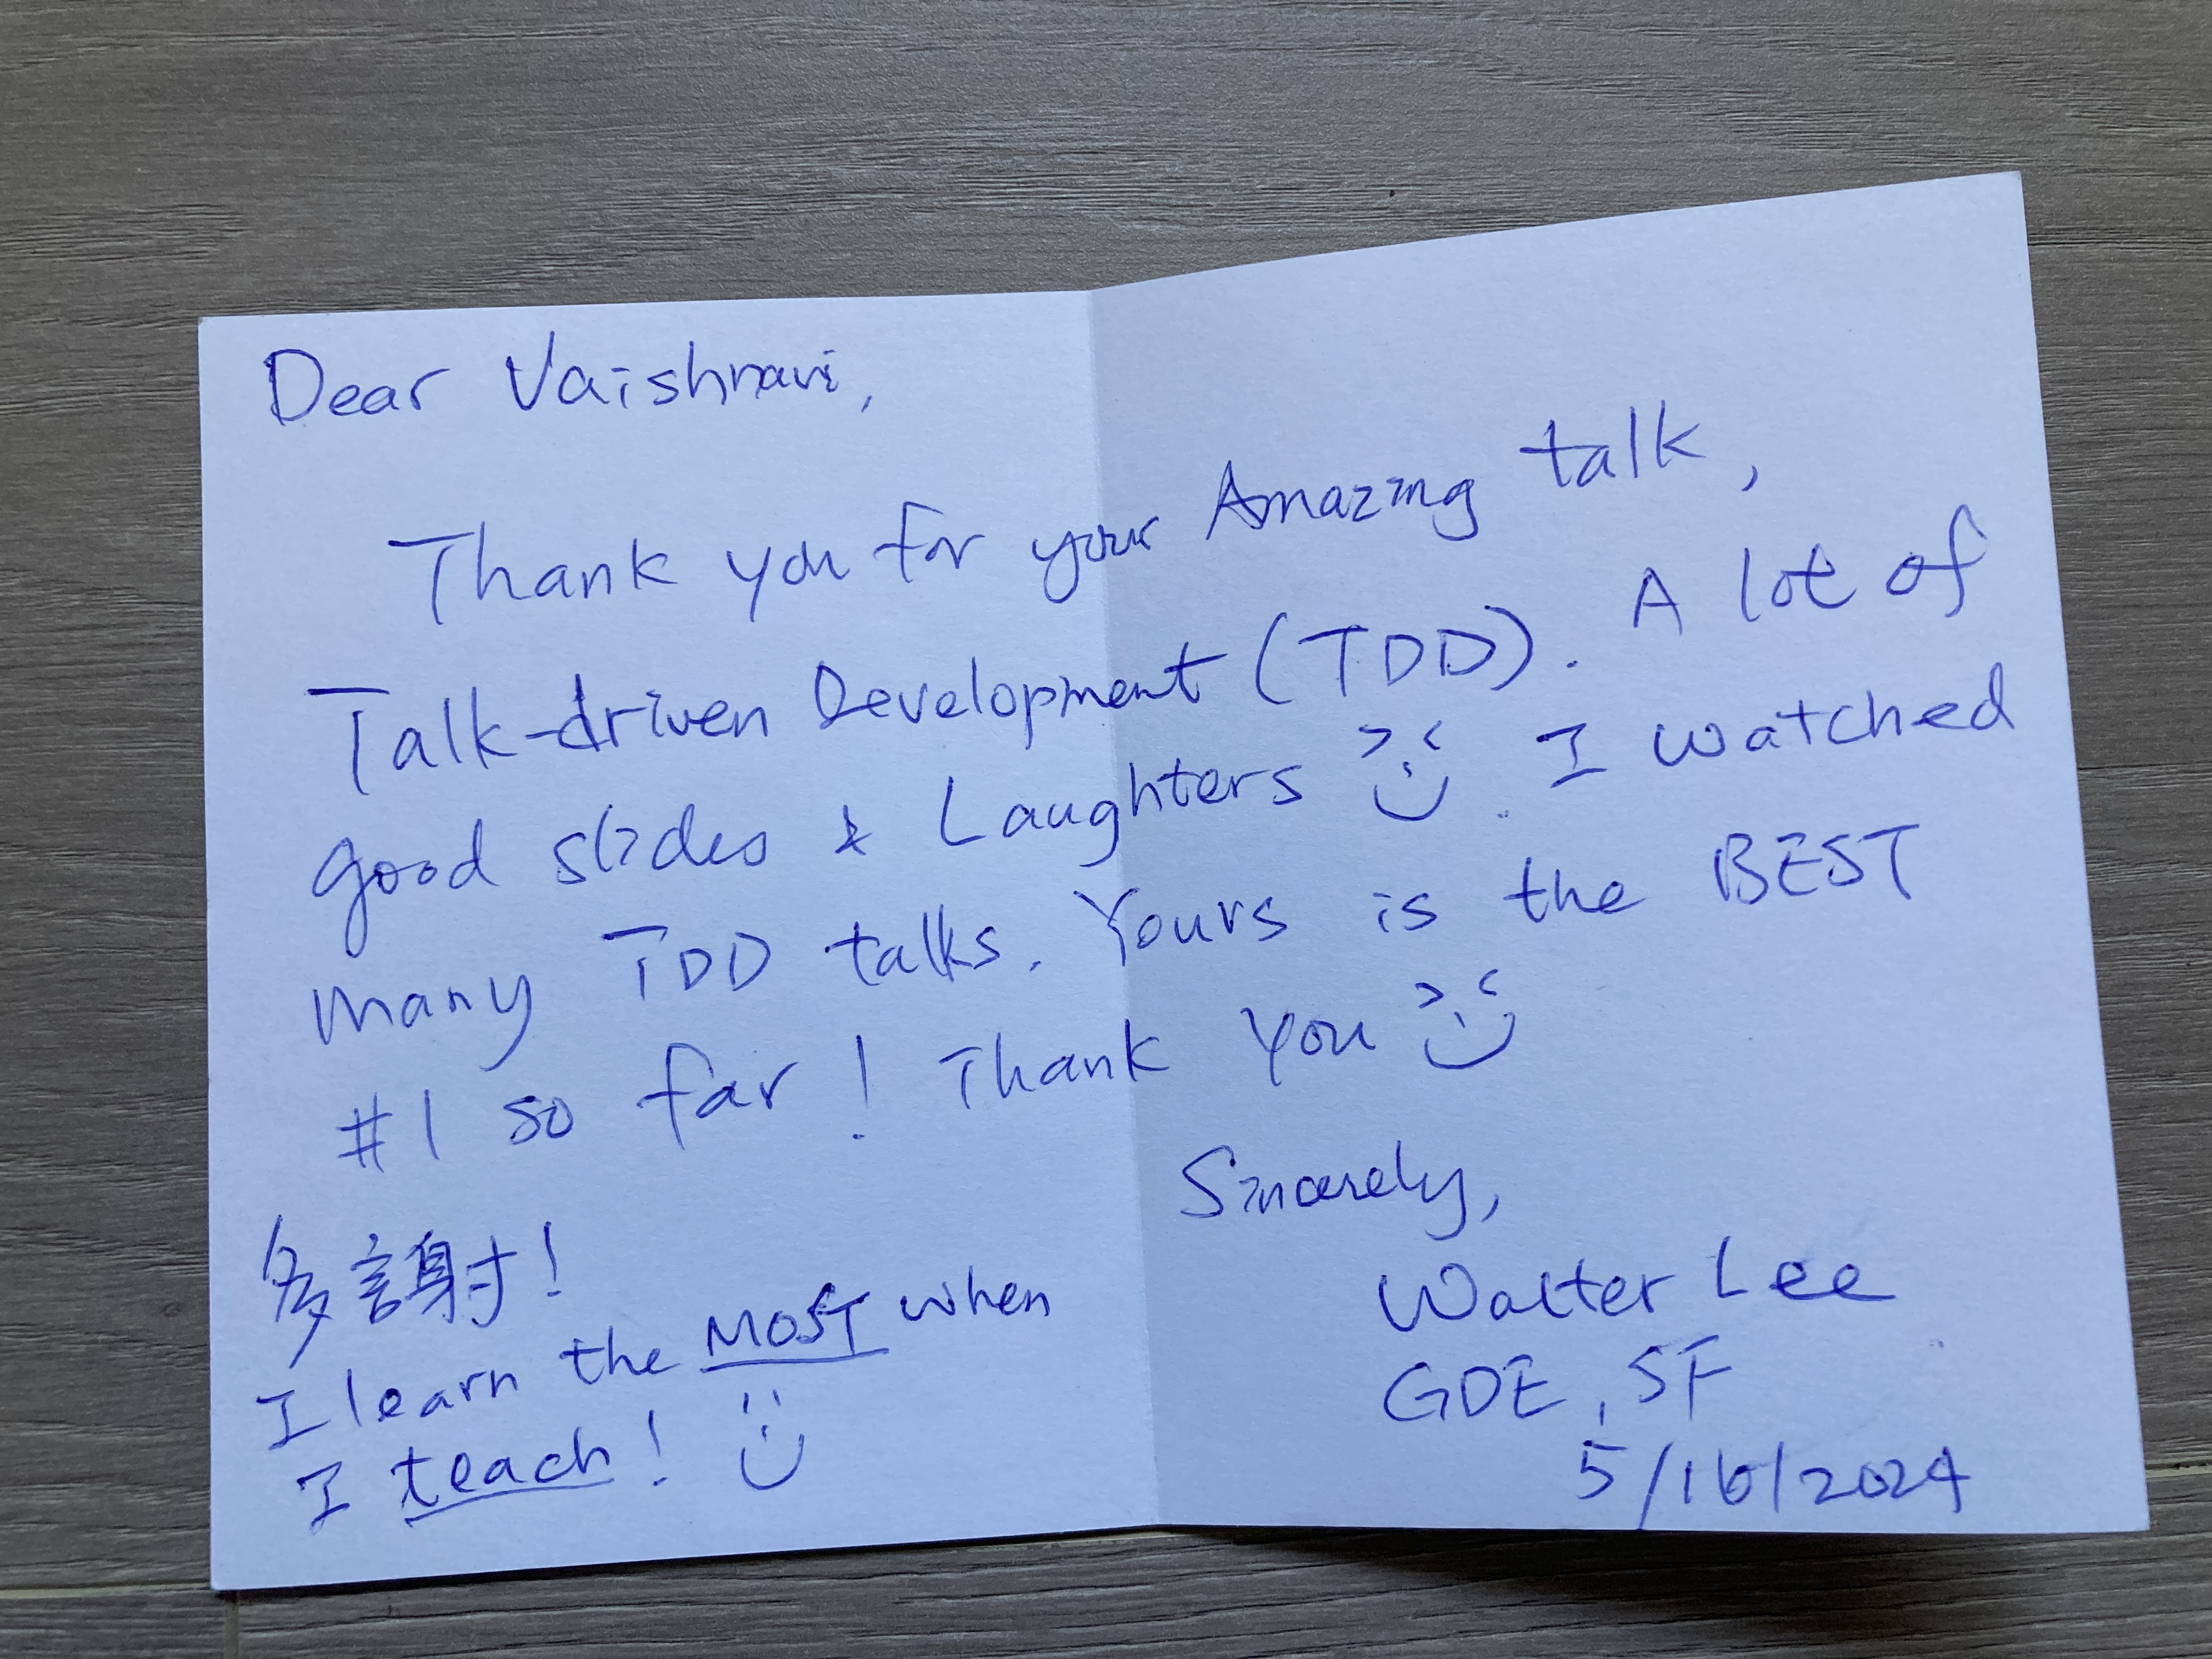 Dear Vaishnavi,
Thank you for your Amazing talk,
Talk-driven Development (TDD). A lot of
good slides & Laughters I watched
many TDD talks. Yours is the BEST
#1 so far! Thank you
Sincerely,
Walter Lee
GDE, SF
5/16/2024
多謝!
I learn the MOST when
I teach!